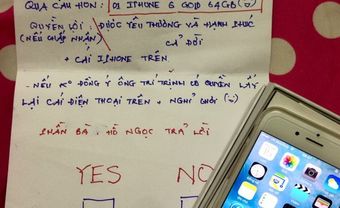 QUÀ CẦU HÔN: 01 IPHONE 6 GOLD 64GB (:)
QUYỀN LỢI: ĐƯỢC YÊU THƯƠNG VÀ HẠNH PHÚC
(NẾU CHẤP NHẬN) CẢ ĐỜI
+ CÁI IPHONE TRÊN
- NẾU KO ĐỒNG Ý ÔNG TRÍ TRÌNH CÓ QUYỀN LẤY
LẠI CÁI ĐIỆN THOẠI TRÊN + NGHỈ CHƠI (:)
PHẦN BÀ HỒ NGỌC TRẢ LỜI
YES NO